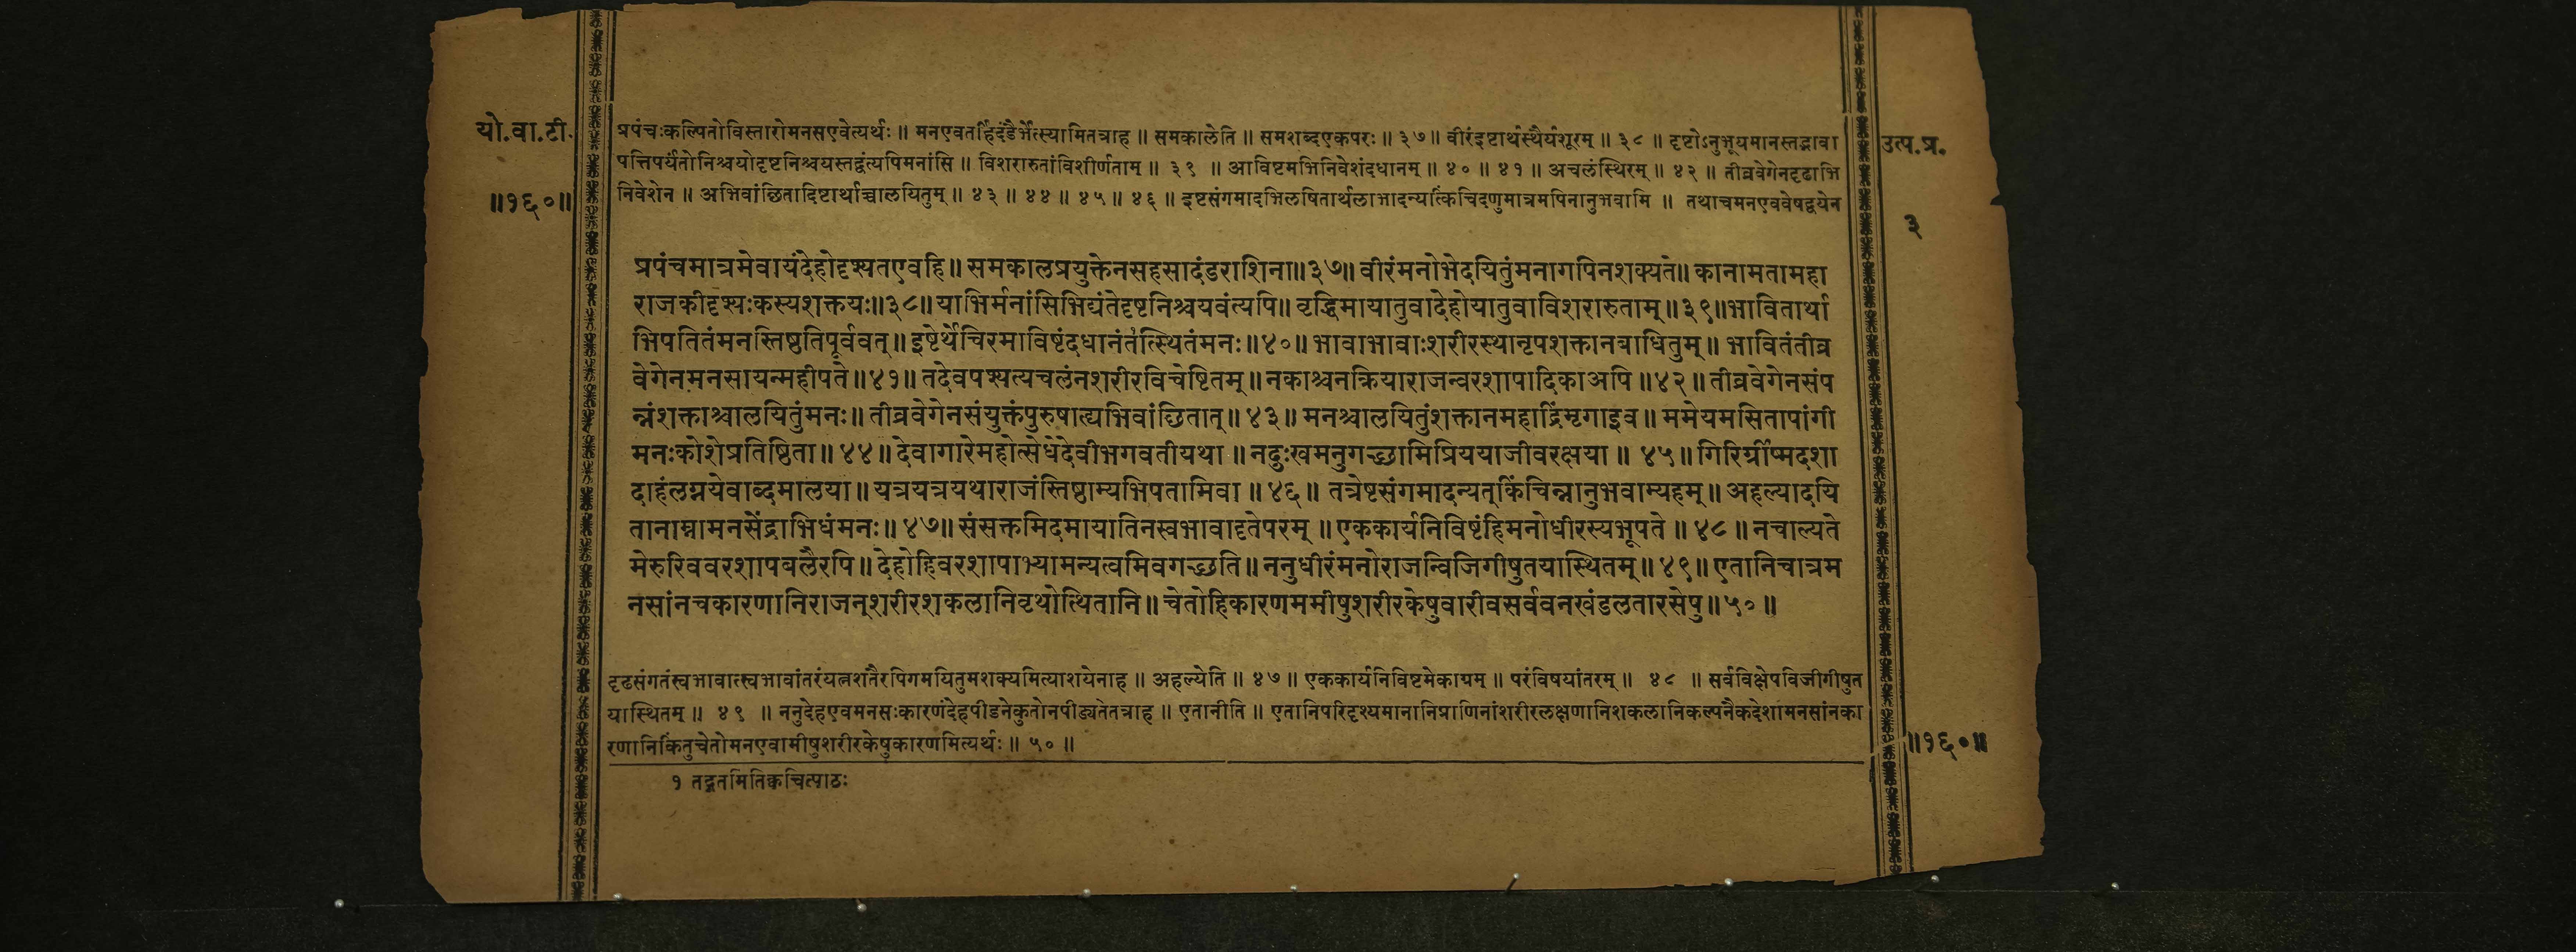 यो.वा.टी.
॥१६०॥
प्रपंचःकल्पितोविस्तारोमनसएवेत्यर्थः ॥ मनएवतर्हिदंडैर्भेत्स्यामितत्राह ॥ समकालेति ॥ समशब्दएकपरः ॥ ३७ ॥ वीरंइष्टार्थस्थैर्यशूरम् ॥ ३८ ॥ दृष्टोऽनुभूयमानस्तद्भावा
पत्तिपर्यंतोनिश्चयोदृष्टनिश्चयस्तद्वंत्यपिमनांसि ॥ विशरारुतांविशीर्णताम् ॥ ३९ ॥ आविष्टमभिनिवेशंदधानम् ॥ ४० ॥ ४१ ॥ अचलंस्थिरम् ॥ ४२ ॥ तीव्रवेगेनदृढाभि
निवेशेन ॥ अभिवांछितादिष्टार्थाच्चालयितुम् ॥ ४३ ॥ ४४ ॥ ४५ ॥ ४६ ॥ इष्टसंगमादभिलषितार्थलाभादन्यत्किंचिदणुमात्रमपिनानुभवामि ॥ तथाचमनएववेषद्वयेन
प्रपंचमात्रमेवायंदेहोदृश्यतएवहि॥ समकालप्रयुक्तेनसहसादंडराशिना॥३७॥ वीरंमनोभेदयितुंमनागपिनशक्यते॥ कानामतामहा
राजकीदृश्यःकस्यशक्तयः॥३८॥ याभिर्मनांसिभिद्यंतेदृष्टनिश्चयवंत्यपि॥ वृद्धिमायातुवादेहोयातुवाविशरारुताम्॥३९॥भावितार्था
भिपतितंमनस्तिष्ठतिपूर्ववत्॥ इष्टेर्थेचिरमाविष्टंदधानंतं१त्स्थितंमनः॥४०॥ भावाभावाःशरीरस्थानृपशक्तानबाधितुम्॥ भावितंतीव्र
वेगेनमनसायन्महीपते॥४१॥ तदेवपश्यत्यचलंनशरीरविचेष्टितम्॥ नकाश्चनक्रियाराजन्वरशापादिकाअपि॥४२॥ तीव्रवेगेनसंप
न्नंशक्ताश्चालयितुंमनः॥ तीव्रवेगेनसंयुक्तंपुरुषात्द्यभिवांछितात्॥ ४३॥ मनश्चालयितुंशक्तानमहाद्रिंमृगाइव॥ ममेयमसितापांगी
मनःकोशेप्रतिष्ठिता॥ ४४॥ देवागारेमहोत्सेधेदेवीभगवतीयथा ॥ नदुःखमनुगच्छामिप्रिययाजीवरक्षया ॥ ४५॥ गिरिर्ग्रीष्मदशा
दाहंलग्नयेवाब्दमालया॥ यत्रयत्रयथाराजंस्तिष्ठाम्यभिपतामिवा ॥ ४६॥ तत्रेष्टसंगमादन्यत्किंचिन्नानुभवाम्यहम्॥ अहल्यादयि
तानाम्नामनसेंद्राभिधंमनः॥ ४७॥ संसक्तमिदमायातिनस्वभावादृतेपरम् ॥ एककार्यनिविष्टंहिमनोधीरस्यभूपते ॥ ४८॥ नचाल्यते
मेरुरिववरशापबलैरपि॥ देहोहिवरशापाभ्यामन्यत्वमिवगच्छति॥ ननुधीरंमनोराजन्विजिगीषुतयास्थितम्॥ ४९॥ एतानिचात्रम
नसांनचकारणानिराजन्शरीरशकलानिवृथोत्थितानि॥ चेतोहिकारणममीषुशरीरकेषुवारीवसर्ववनखंडलतारसेषु॥५०॥
दृढसंगतंस्वभावात्स्वभावांतरंयत्नशतैरपिगमयितुमशक्यमित्याशयेनाह ॥ अहल्येति ॥ ४७ ॥ एककार्यनिविष्टमेकाग्रम् ॥ परंविषयांतरम् ॥ ४८ ॥ सर्वविक्षेपविजीगीषुत
यास्थितम् ॥ ४९ ॥ ननुदेहएवमनसःकारणंदेहपीडनेकुतोनपीड्यतेतत्राह ॥ एतानीति ॥ एतानिपरिदृश्यमानानिप्राणिनांशरीरलक्षणानिशकलानिकल्पनैकदेशामनसांनका
रणानिकिंतुचेतोमनएवामीषुशरीरकेषुकारणमित्यर्थः ॥ ५० ॥
१ तद्गतमितिक्वचित्पाठः
उत्प.प्र.
३
॥१६०॥